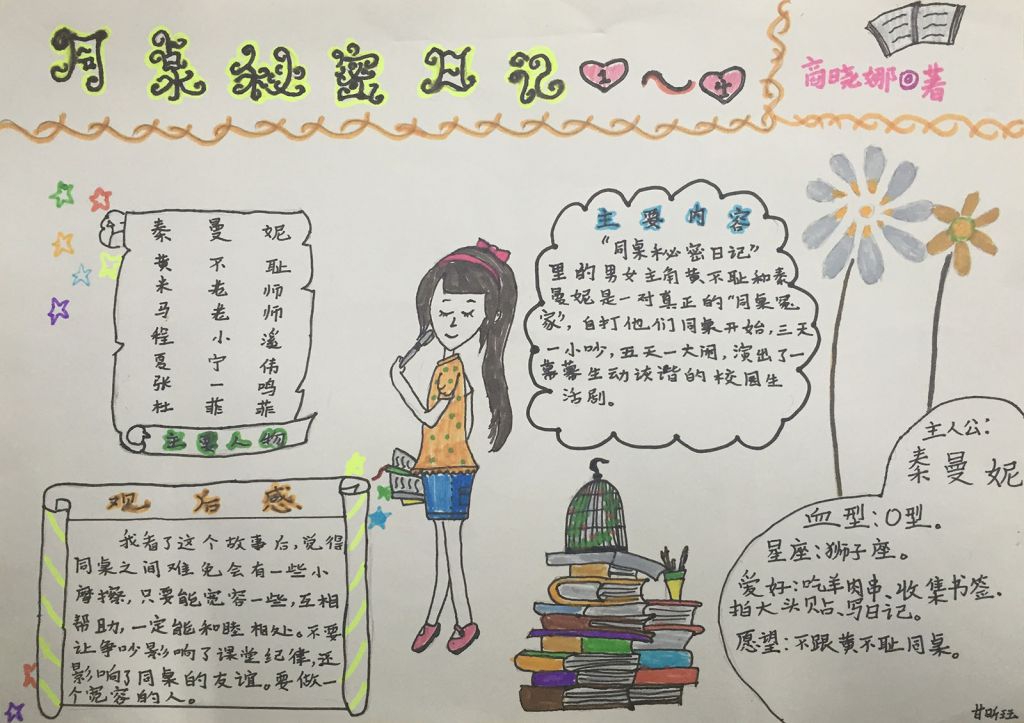 同桌秘密日记 1～4
商晓娜◎著
秦曼妮
黄不耻
米老师
马老师
程小遥
夏宁伟
张一鸣
杜菲菲
主要人物
主要内容
“同桌秘密日记”
里的男女主角黄不耻和秦
曼妮是一对真正的“同桌冤
家”，自打他们同桌开始，三天
一小吵，五天一大闹，演出了一
幕幕生动诙谐的校园生
活剧。
观后感
我看了这个故事后，觉得
同桌之间难免会有一些小
摩擦，只要能宽容一些，互相
帮助，一定能和睦相处。不要
让争吵影响了课堂纪律，还
影响了同桌的友谊。要做一
个宽容的人。
主人公：
秦曼妮
血型：O型。
星座：狮子座。
爱好：吃羊肉串、收集书签.
拍大头贴、写日记。
愿望：不跟黄不耻同桌。